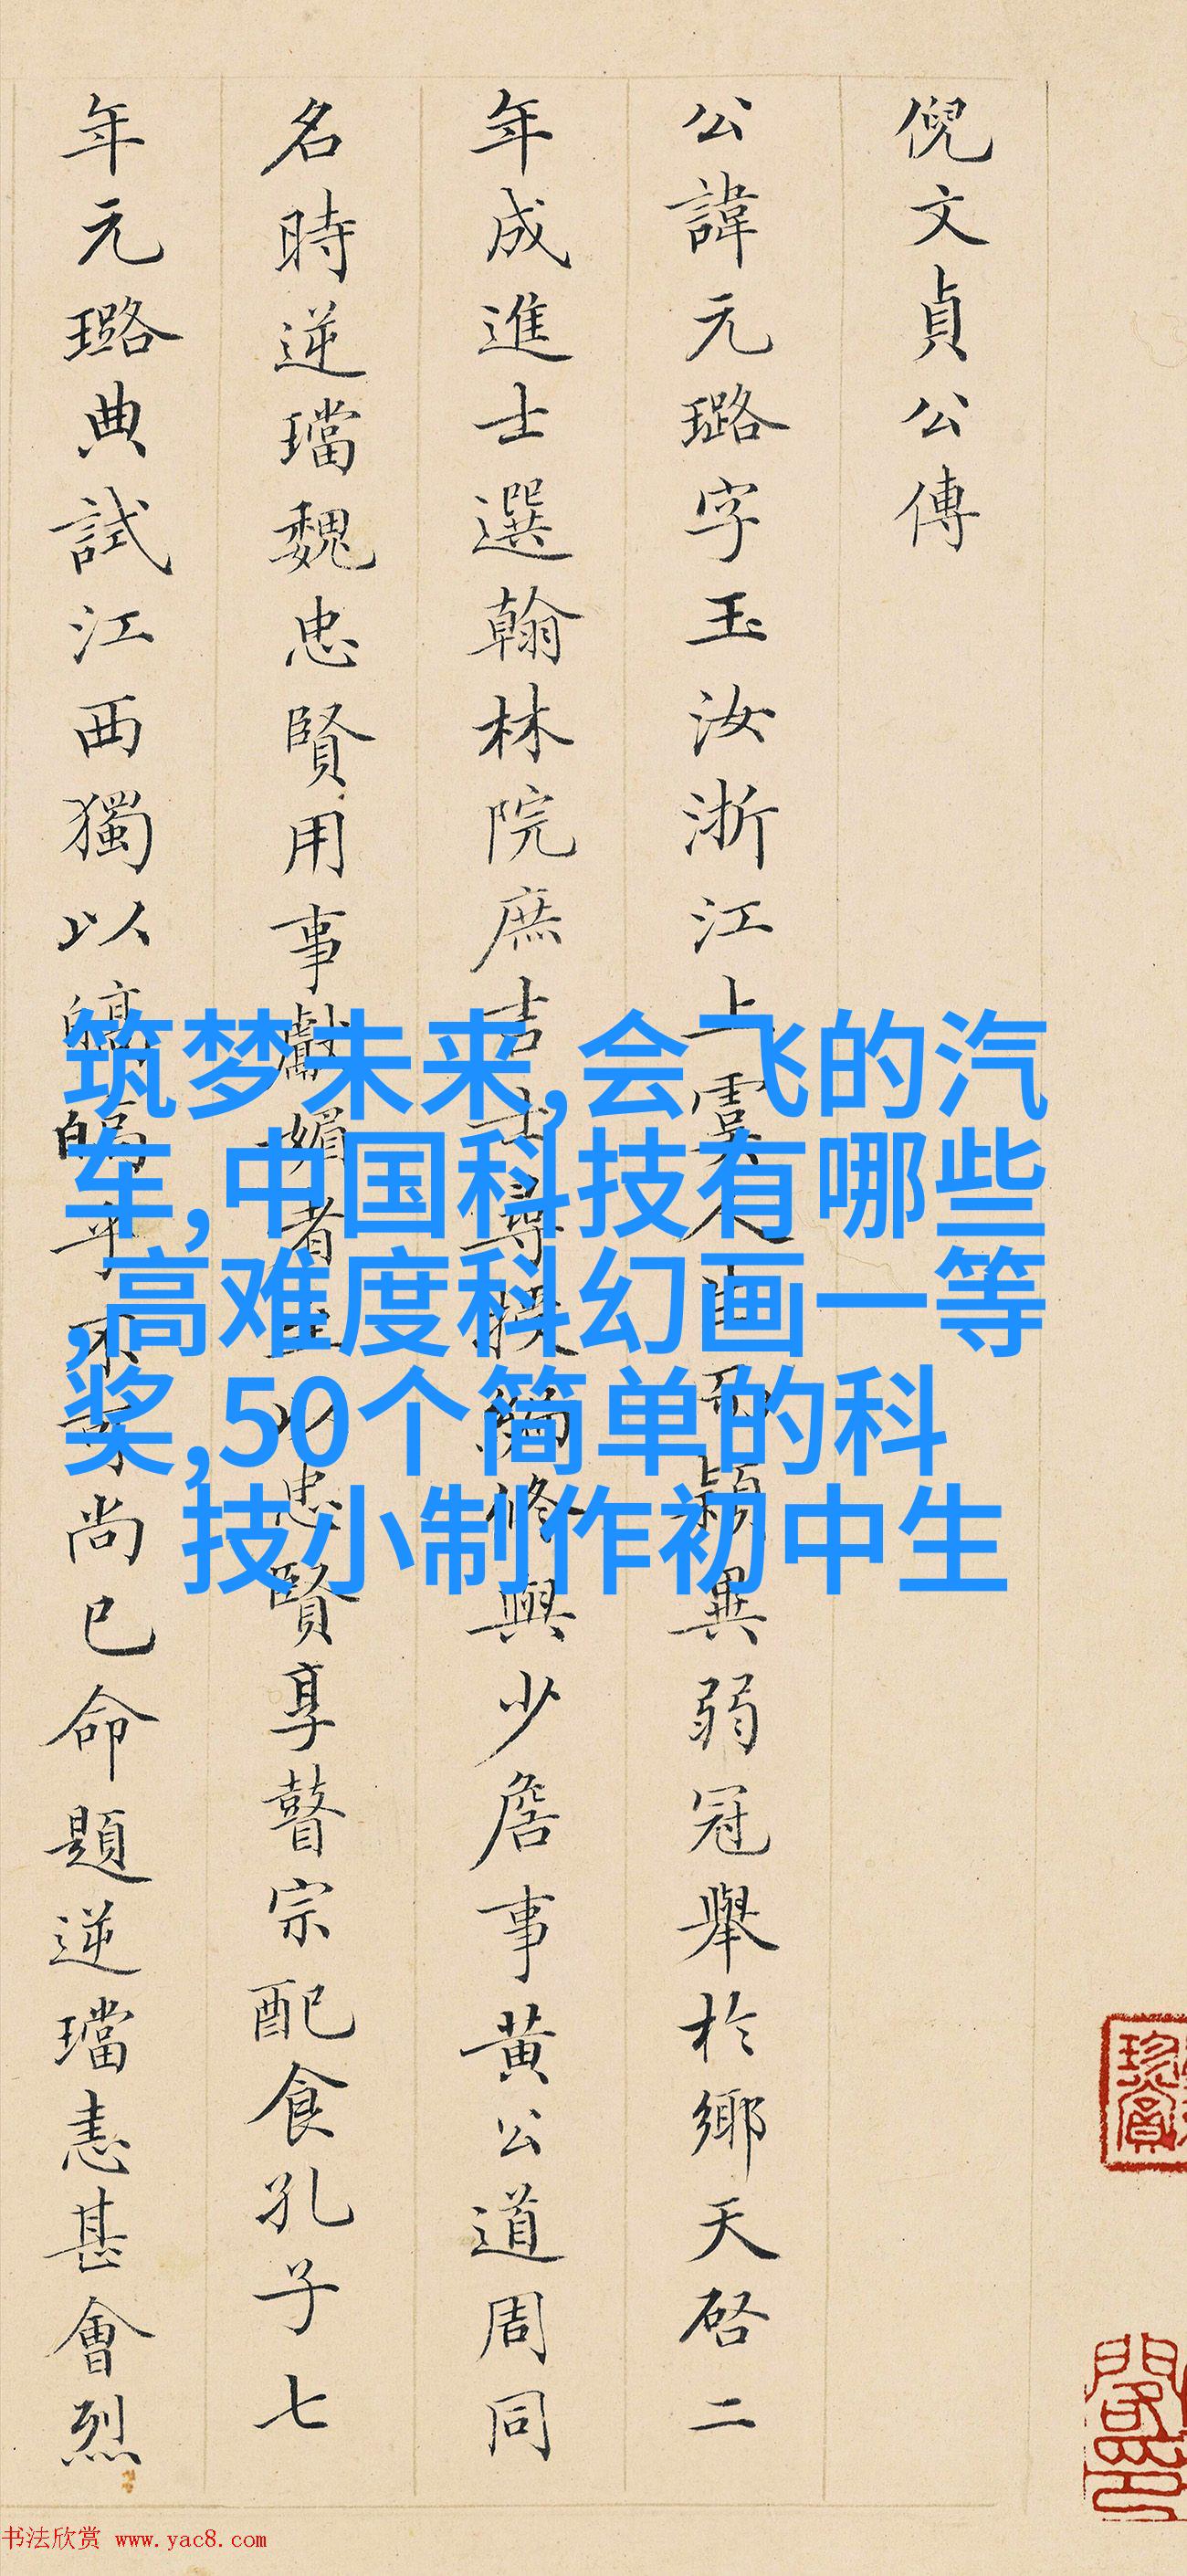 倪文貞公傳
公諱元璐字玉汝浙江上虞人而穎異弱冠舉於鄉天啓二
年成進士選翰林院庶吉士尋授編修與少詹事黄公道周同
名時逆璫魏忠賢用事獻媚者至以忠賢享瞽宗配食孔子七
年元璐典試江西獨以皜皜乎不可尚已命題逆璫恚甚會烈
筑梦未来,会飞的汽
车,中国科技有哪些
,高难度科幻画一等
奖,50个简单的科
技小制作初中生
书法欣赏 www.yac8.com